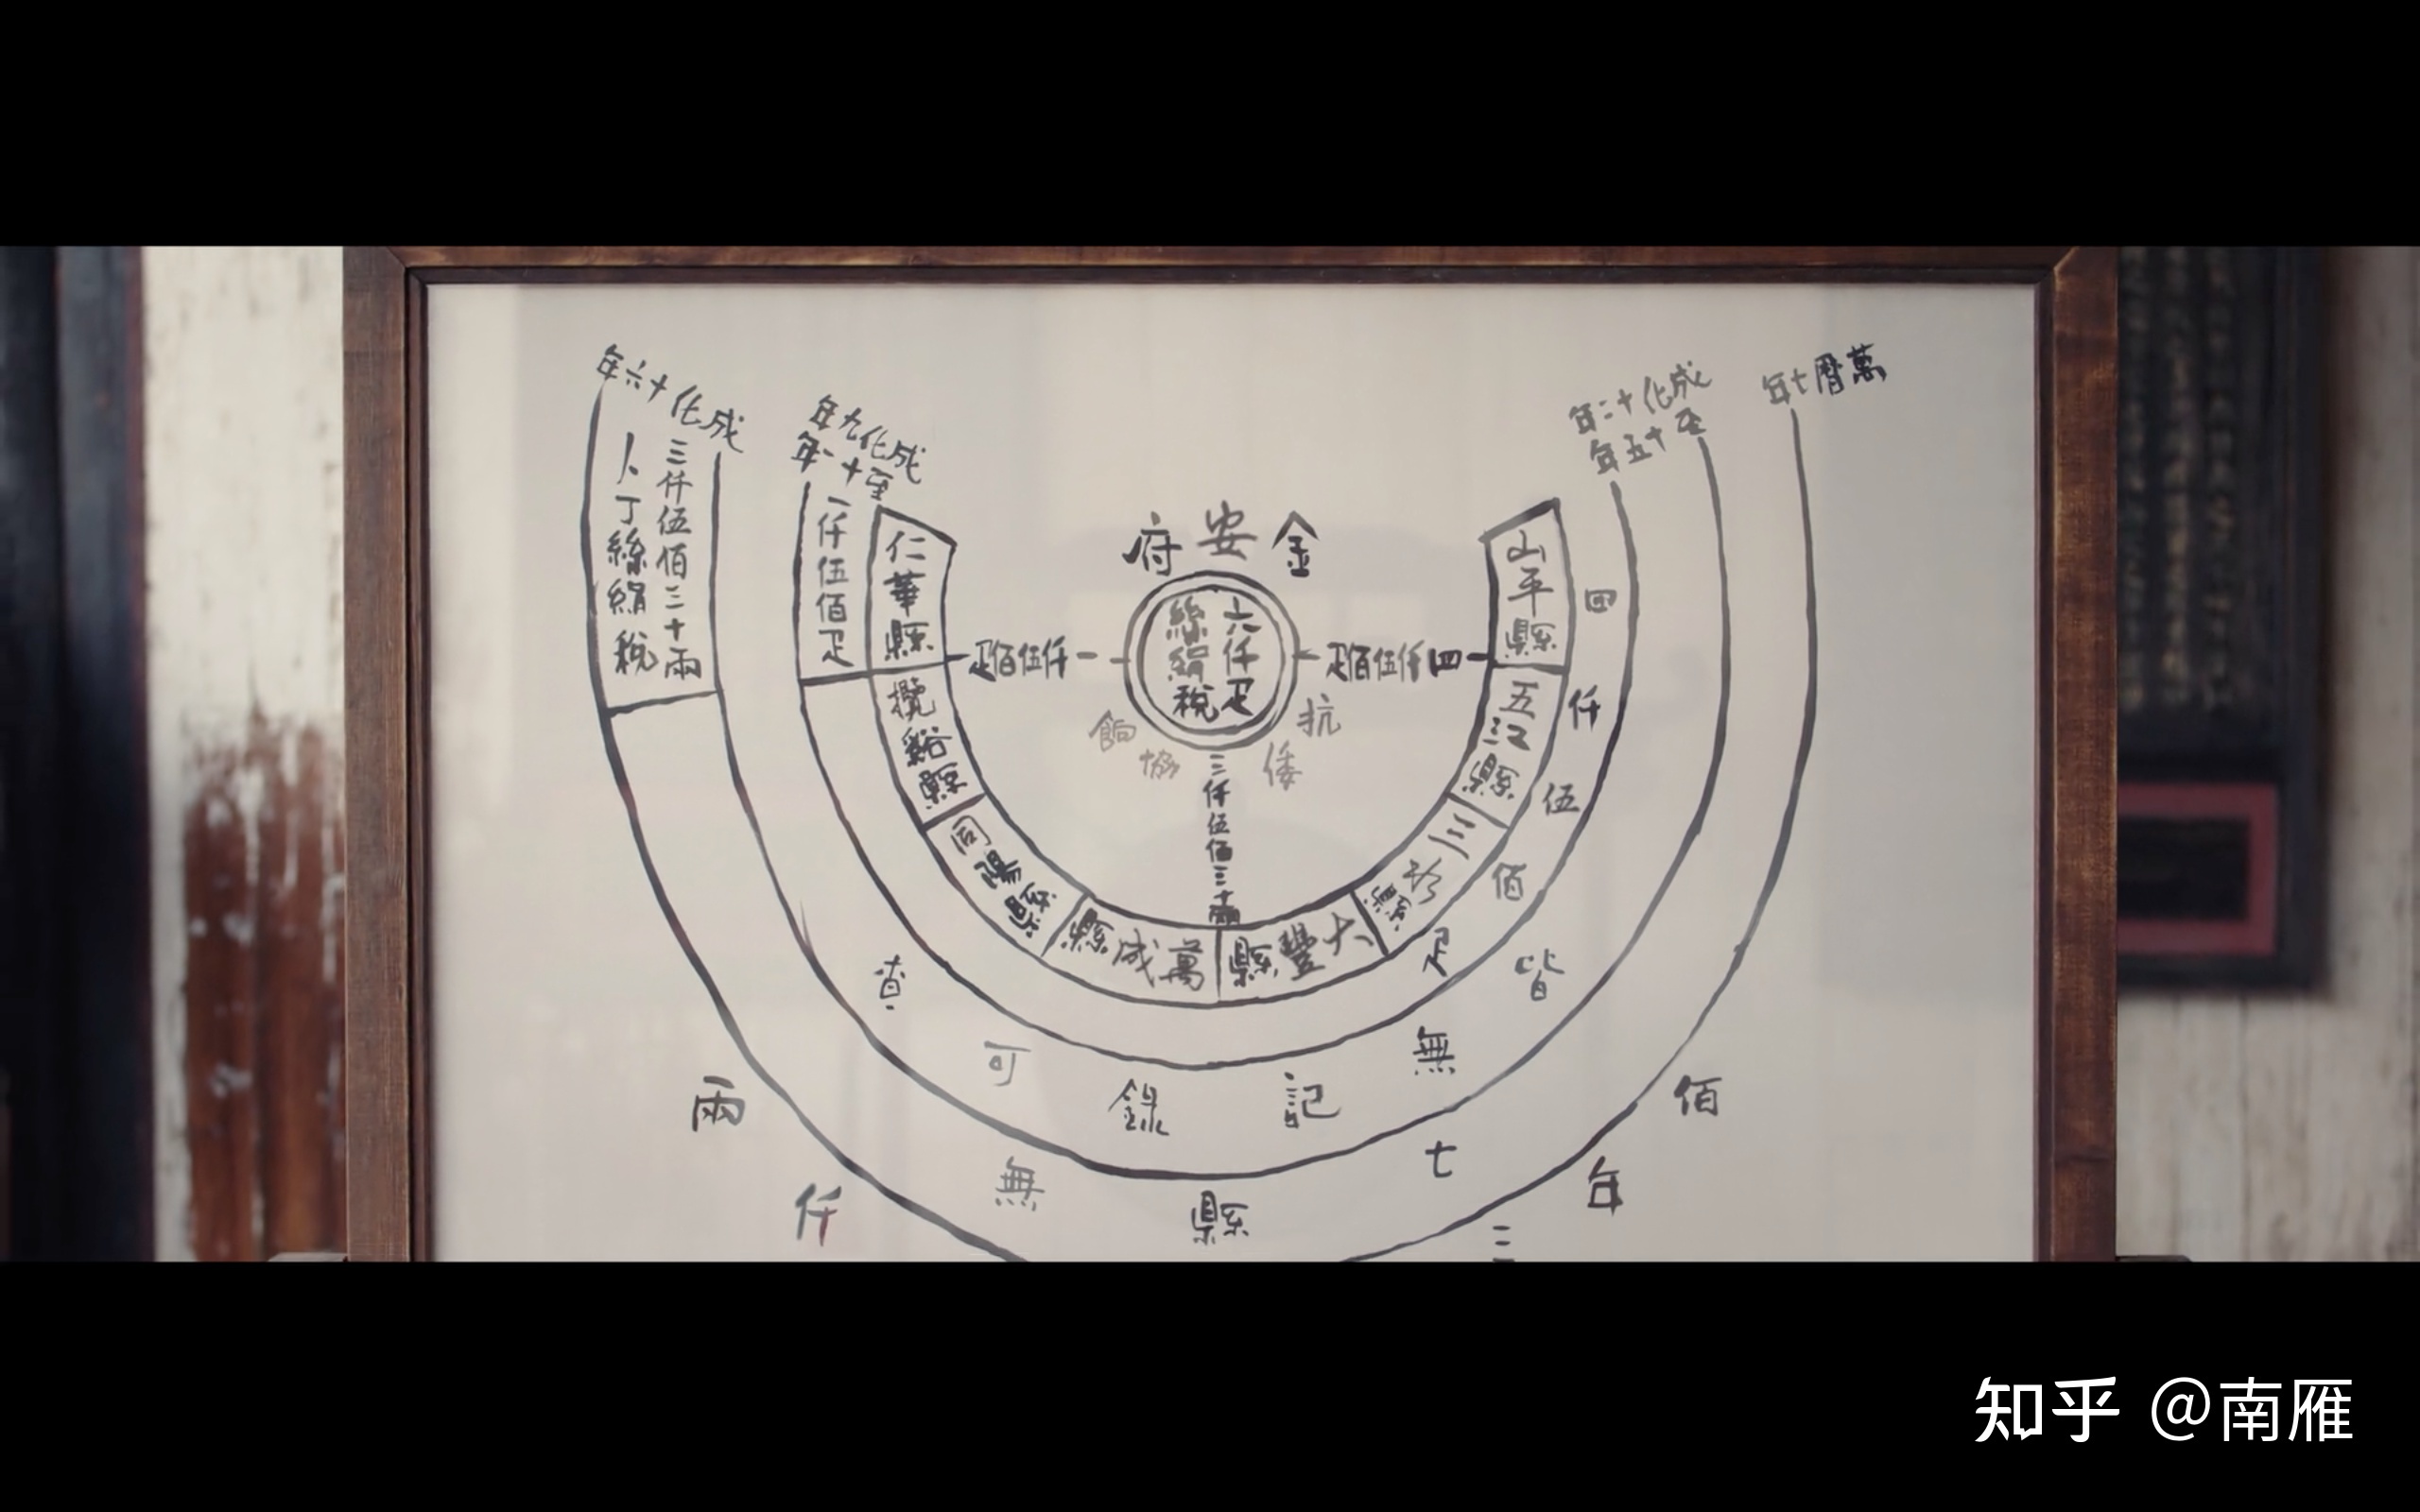 成化十六年
三仟伍佰三十兩
人丁絲絹稅
成化九年
至十一年
一仟伍佰疋
仁華縣
攬谿縣
同陽縣
萬成縣
大豐縣
三衫縣
五江縣
山平縣
金安府
六仟疋
絲絹稅
一仟伍佰疋
四仟伍佰疋
抗倭
協餉
三仟伍佰三十兩
成化十二年
至十五年
萬曆七年
四仟伍佰疋
皆無記錄可查
七縣無
佰年三仟兩
知乎 @南雁